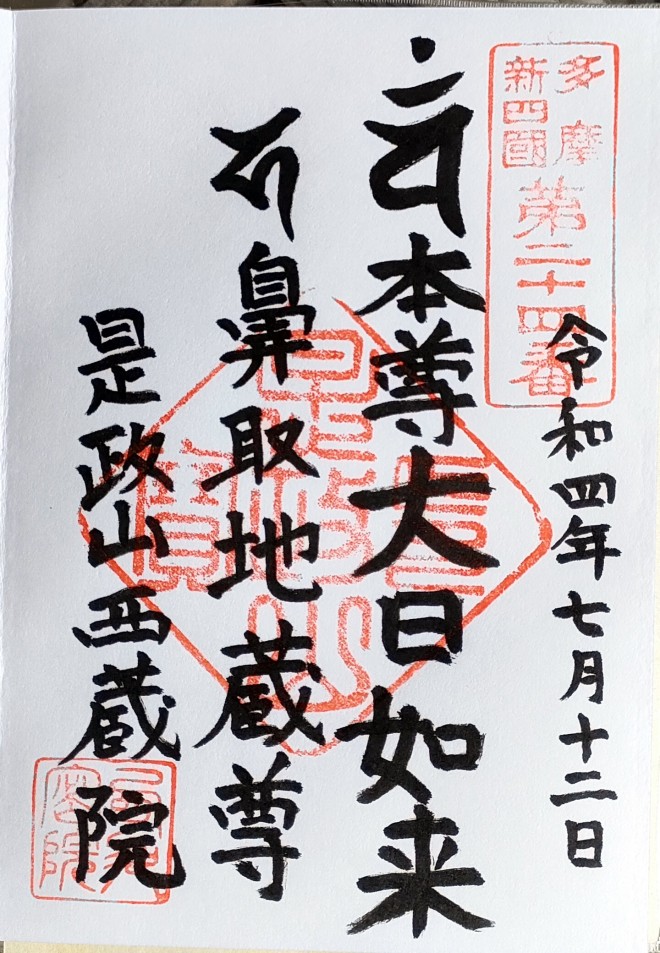 多摩
新四國
第二十四番
令和四年七月十二日
本尊大日如来
鼻取地蔵尊
是政山西蔵院
是政山